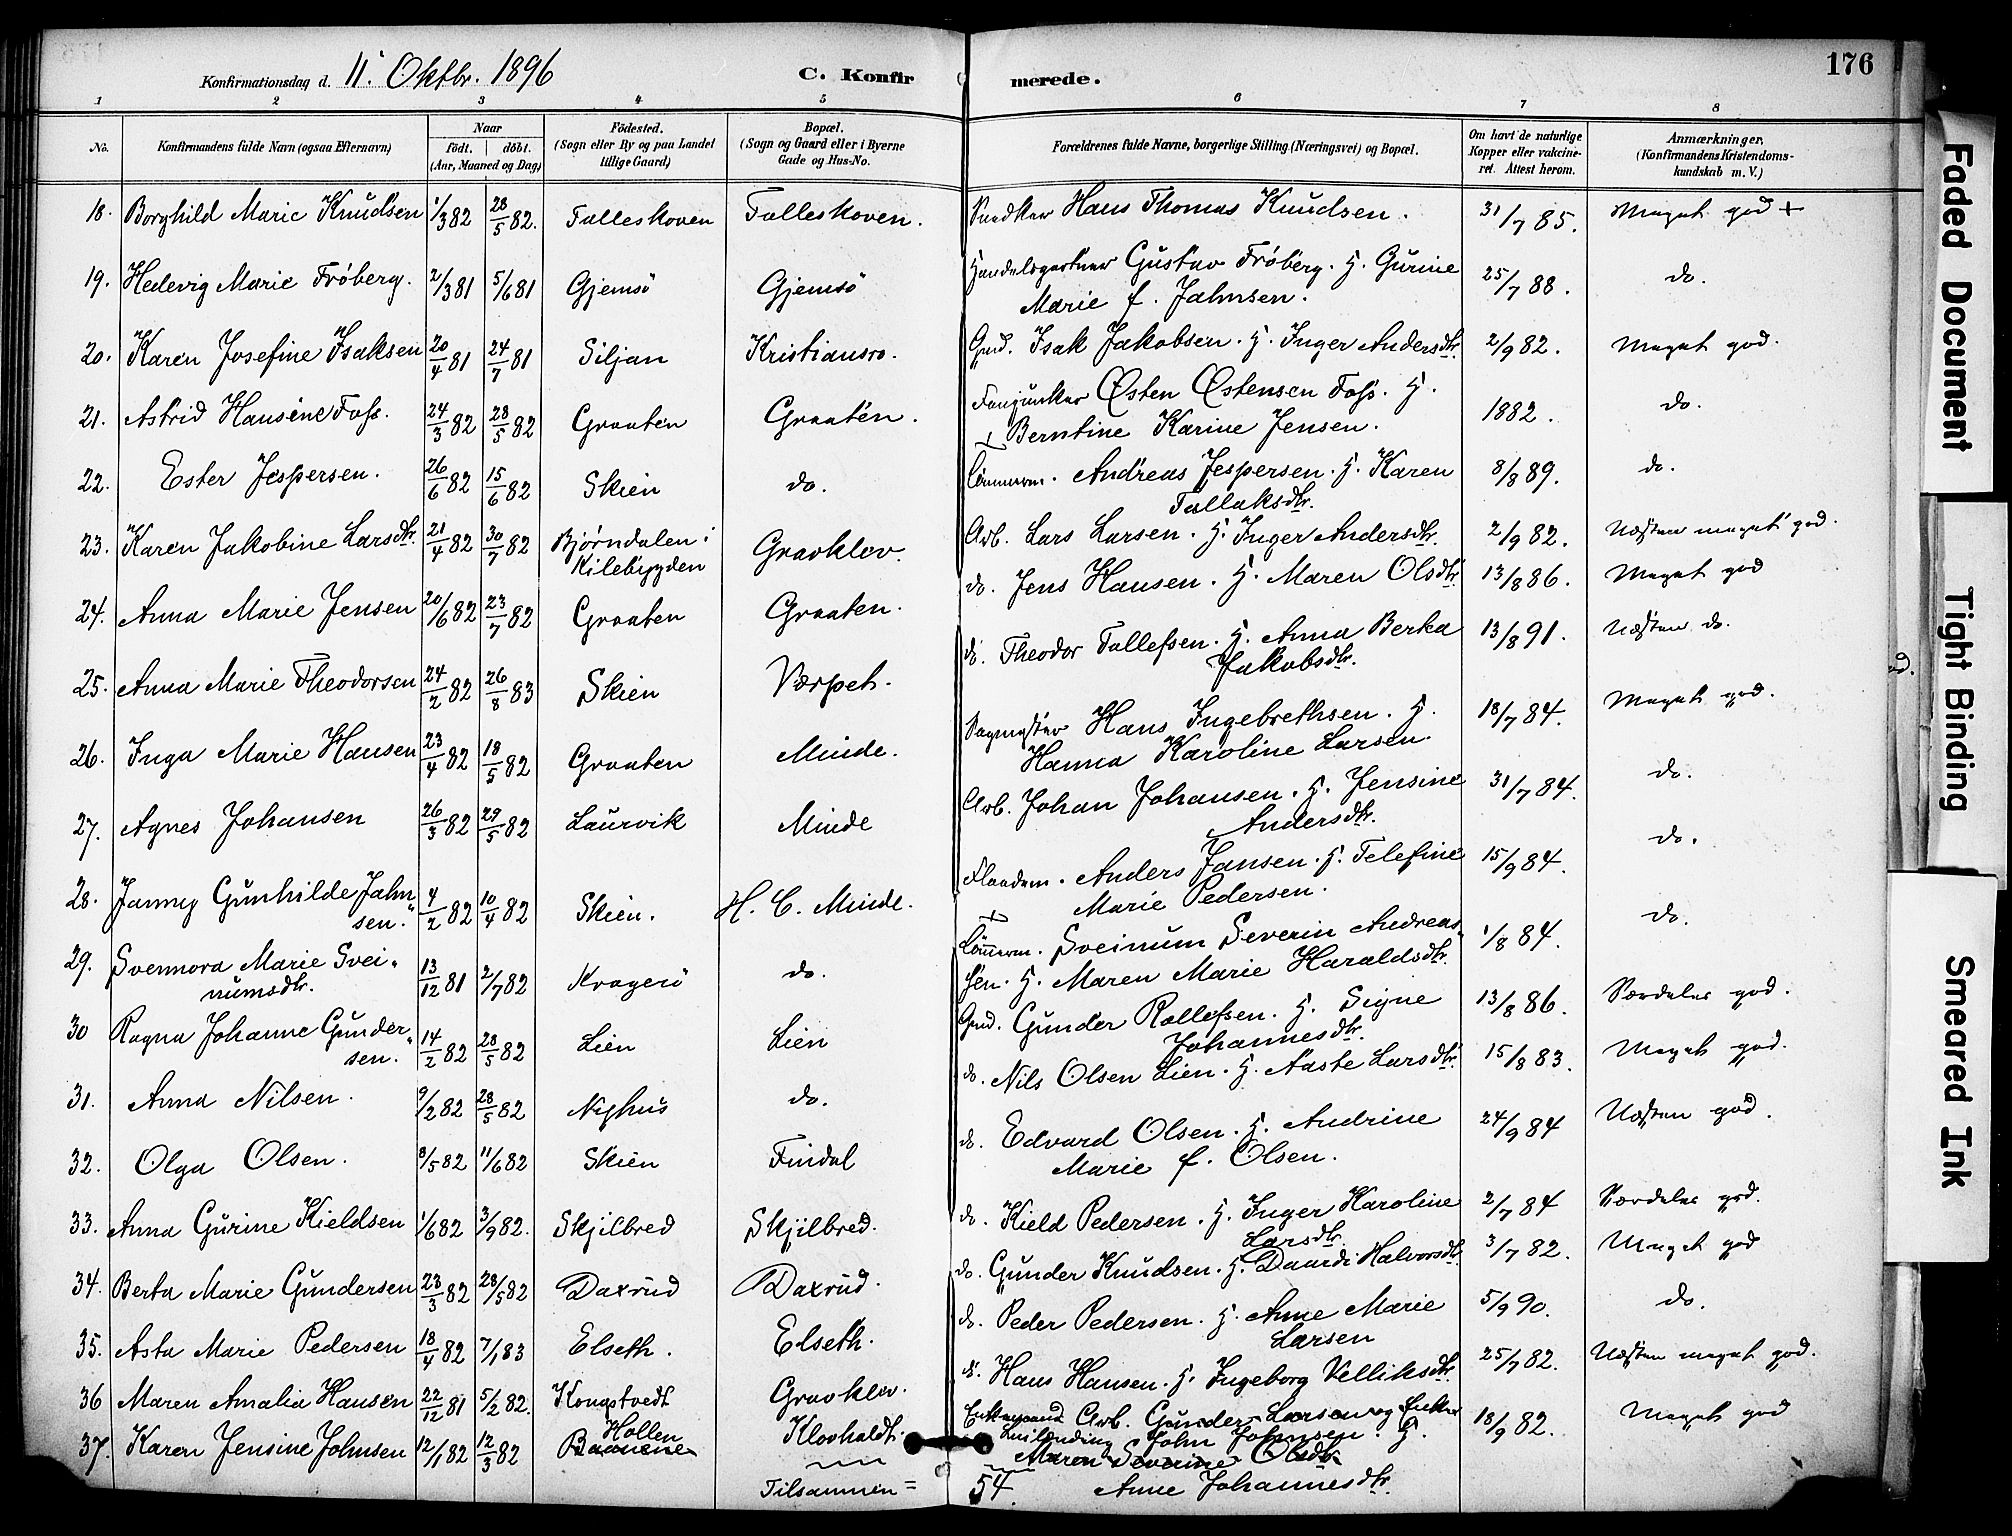 Konfirmationsdag d. 11. Oktbr. 1896
C. Konfirmerede.
176
1 2 3 4 5 6 7 8
No.
Konfirmandens fulde Navn (ogsaa Efternavn)
Naar
født. døbt.
(Aar, Maaned og Dag)
Fødested.
(Sogn eller By og paa Landet tillige Gaard)
Bopæl.
(Sogn og Gaard eller i Byerne Gade og Hus-No.
Forældrenes fulde Navne, borgerlige Stilling (Næringsvei) og Bopæl.
Om havt de naturlige Kopper eller vakcineret. Attest herom.
Anmærkninger, (Konfirmandens Kristendomskundskab m. V.)
18. Borghild Marie Knudsen 1/3 82 28/5 82. Falleskoven Falleskoven. Snedker Hans Thomas Knudsen. 31/7 85. Meget god +
19. Hedevig Marie Frøberg. 2/3 81 5/6 81 Gjemsö Gjemsö Handelsgartner Gustav Frøberg. H. Gurine
Marie f. Jahnsen. 25/7 88. do.
20. Karen Josefine Isaksen 20/4 81 24/7 81 Siljan Kristiansro. Gmd. Isak Jakobsen. H. Inger Andersdtr. 2/9 82. Meget god.
21. Astrid Hansine Foss. 24/3 82 28/5 82 Graaten Graaten. Fanejunker Østen Østensen Foss. H.
+ Berntine Karine Jensen. 1882. do.
22. Ester Jespersen. 26/6 82 15/6 82 Skien do. Tömmerm. Andreas Jespersen. H. Karen
Tallaksdtr. 8/8 89. do.
23. Karen Jakobine Larsdtr. 21/4 82 30/7 82 Bjørndalen i
Kilebygden Gravklev. Arb. Lars Larsen. H. Inger Andersdtr. 2/9 82. Næsten meget god.
24. Anna Marie Jensen 20/6 82 23/7 82 Graaten Graaten. do. Jens Hansen. H. Maren Olsdtr. 13/8 86. Meget god
25. Anna Marie Theodorsen 24/2 82 26/8 83 Skien Værpet. do. Theodor Tollefsen. H. Anna Berta
Jakobsdtr. 13/8 91. Næsten do.
26. Inga Marie Hansen 23/4 82 18/5 82 Graaten Minde. Sagmester Hans Ingebrethsen. H.
Hanna Karoline Larsen. 18/7 84. Meget god.
27. Agnes Johansen 26/3 82 29/5 82 Laurvik Minde Arb. Johan Johansen. H. Jensine
Andersdtr. 31/7 84. do.
28. Janny Gunhilde Jahn
sen. 4/2 82 10/4 82 Skien. H. C. Minde. Flaadem. Anders Jansen. H. Telefine
Marie Pedersen. 15/9 84. do.
29. Svennora Marie Svei-
numsdtr. 13/12 81 2/7 82 Kragerö do. + Tömmerm. Sveinum Severin Andreas-
sen. H. Maren Marie Haraldsdtr. 1/8 84. do.
30 Ragna Johanne Gunder-
sen. 14/2 82 28/5 82 Lien Lien Gmd. Gunder Rollefsen. H. Signe
Johannesdtr. 13/8 86. Særdeles god.
31. Anna Nilsen. 9/2 82 28/5 82 Nyhus do. do. Nils Olsen Lien. H. Aaste Larsdtr. 15/8 83. Meget god.
32. Olga Olsen. 8/5 82 11/6 82 Skien Findal do. Edvard Olsen. H. Andrine
Marie f. Olsen. 24/9 84 Næsten god.
33. Anna Gurine Kieldsen 1/6 82 3/9 82. Skjilbred Skjilbred. do. Kield Pedersen. H. Inger Karoline
Larsdtr. 2/7 84 Særdeles god.
34. Berta Marie Gundersen 23/3 82 28/5 82 Daxrud Daxrud. do. Gunder Knudsen. H. Daardi Halvorsdtr. 3/7 82. Meget god
35. Asta Marie Pedersen 18/4 82 7/1 83 Elseth. Elseth. do. Peder Pedersen. H. Anne Marie
Larsen 5/9 90. do.
36 Maren Amalia Hansen 22/12 81 5/2 82. Kongstvedt Gravklev. do. Hans Hansen. H. Ingeborg Velliksdtr. 25/7 82. Næsten meget god.
37. Karen Jensine Johnsen 12/1 82 12/3 82 Hollen
Klovholdt. Enkemand Arb. Gunder Larsen og Enke
John Johnsen. H.
Maren Severine Olsdtr.
Anne Johannesdtr. 18/9 82. Meget god
Tilsammen = 54.
Faded Document
Tight Binding
Smeared Ink